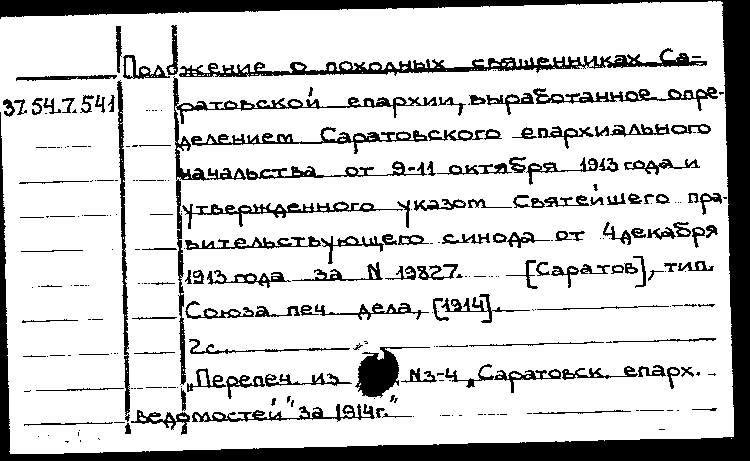 Положение о походных священниках Са-
37.54.7.541 ратовской епархии, выработанное опре-
делением Саратовского епархиального
начальства от 9-11 октября 1913 года и
утвержденного указом Святейшего пра-
вительствующего синода от 4 декабря
1913 года за N 19827. [Саратов], тип.
Союза печ. дела, [1914].
2с.
"Перепеч. из N3-4 "Саратовск. епарх.
ведомостей" за 1914г."